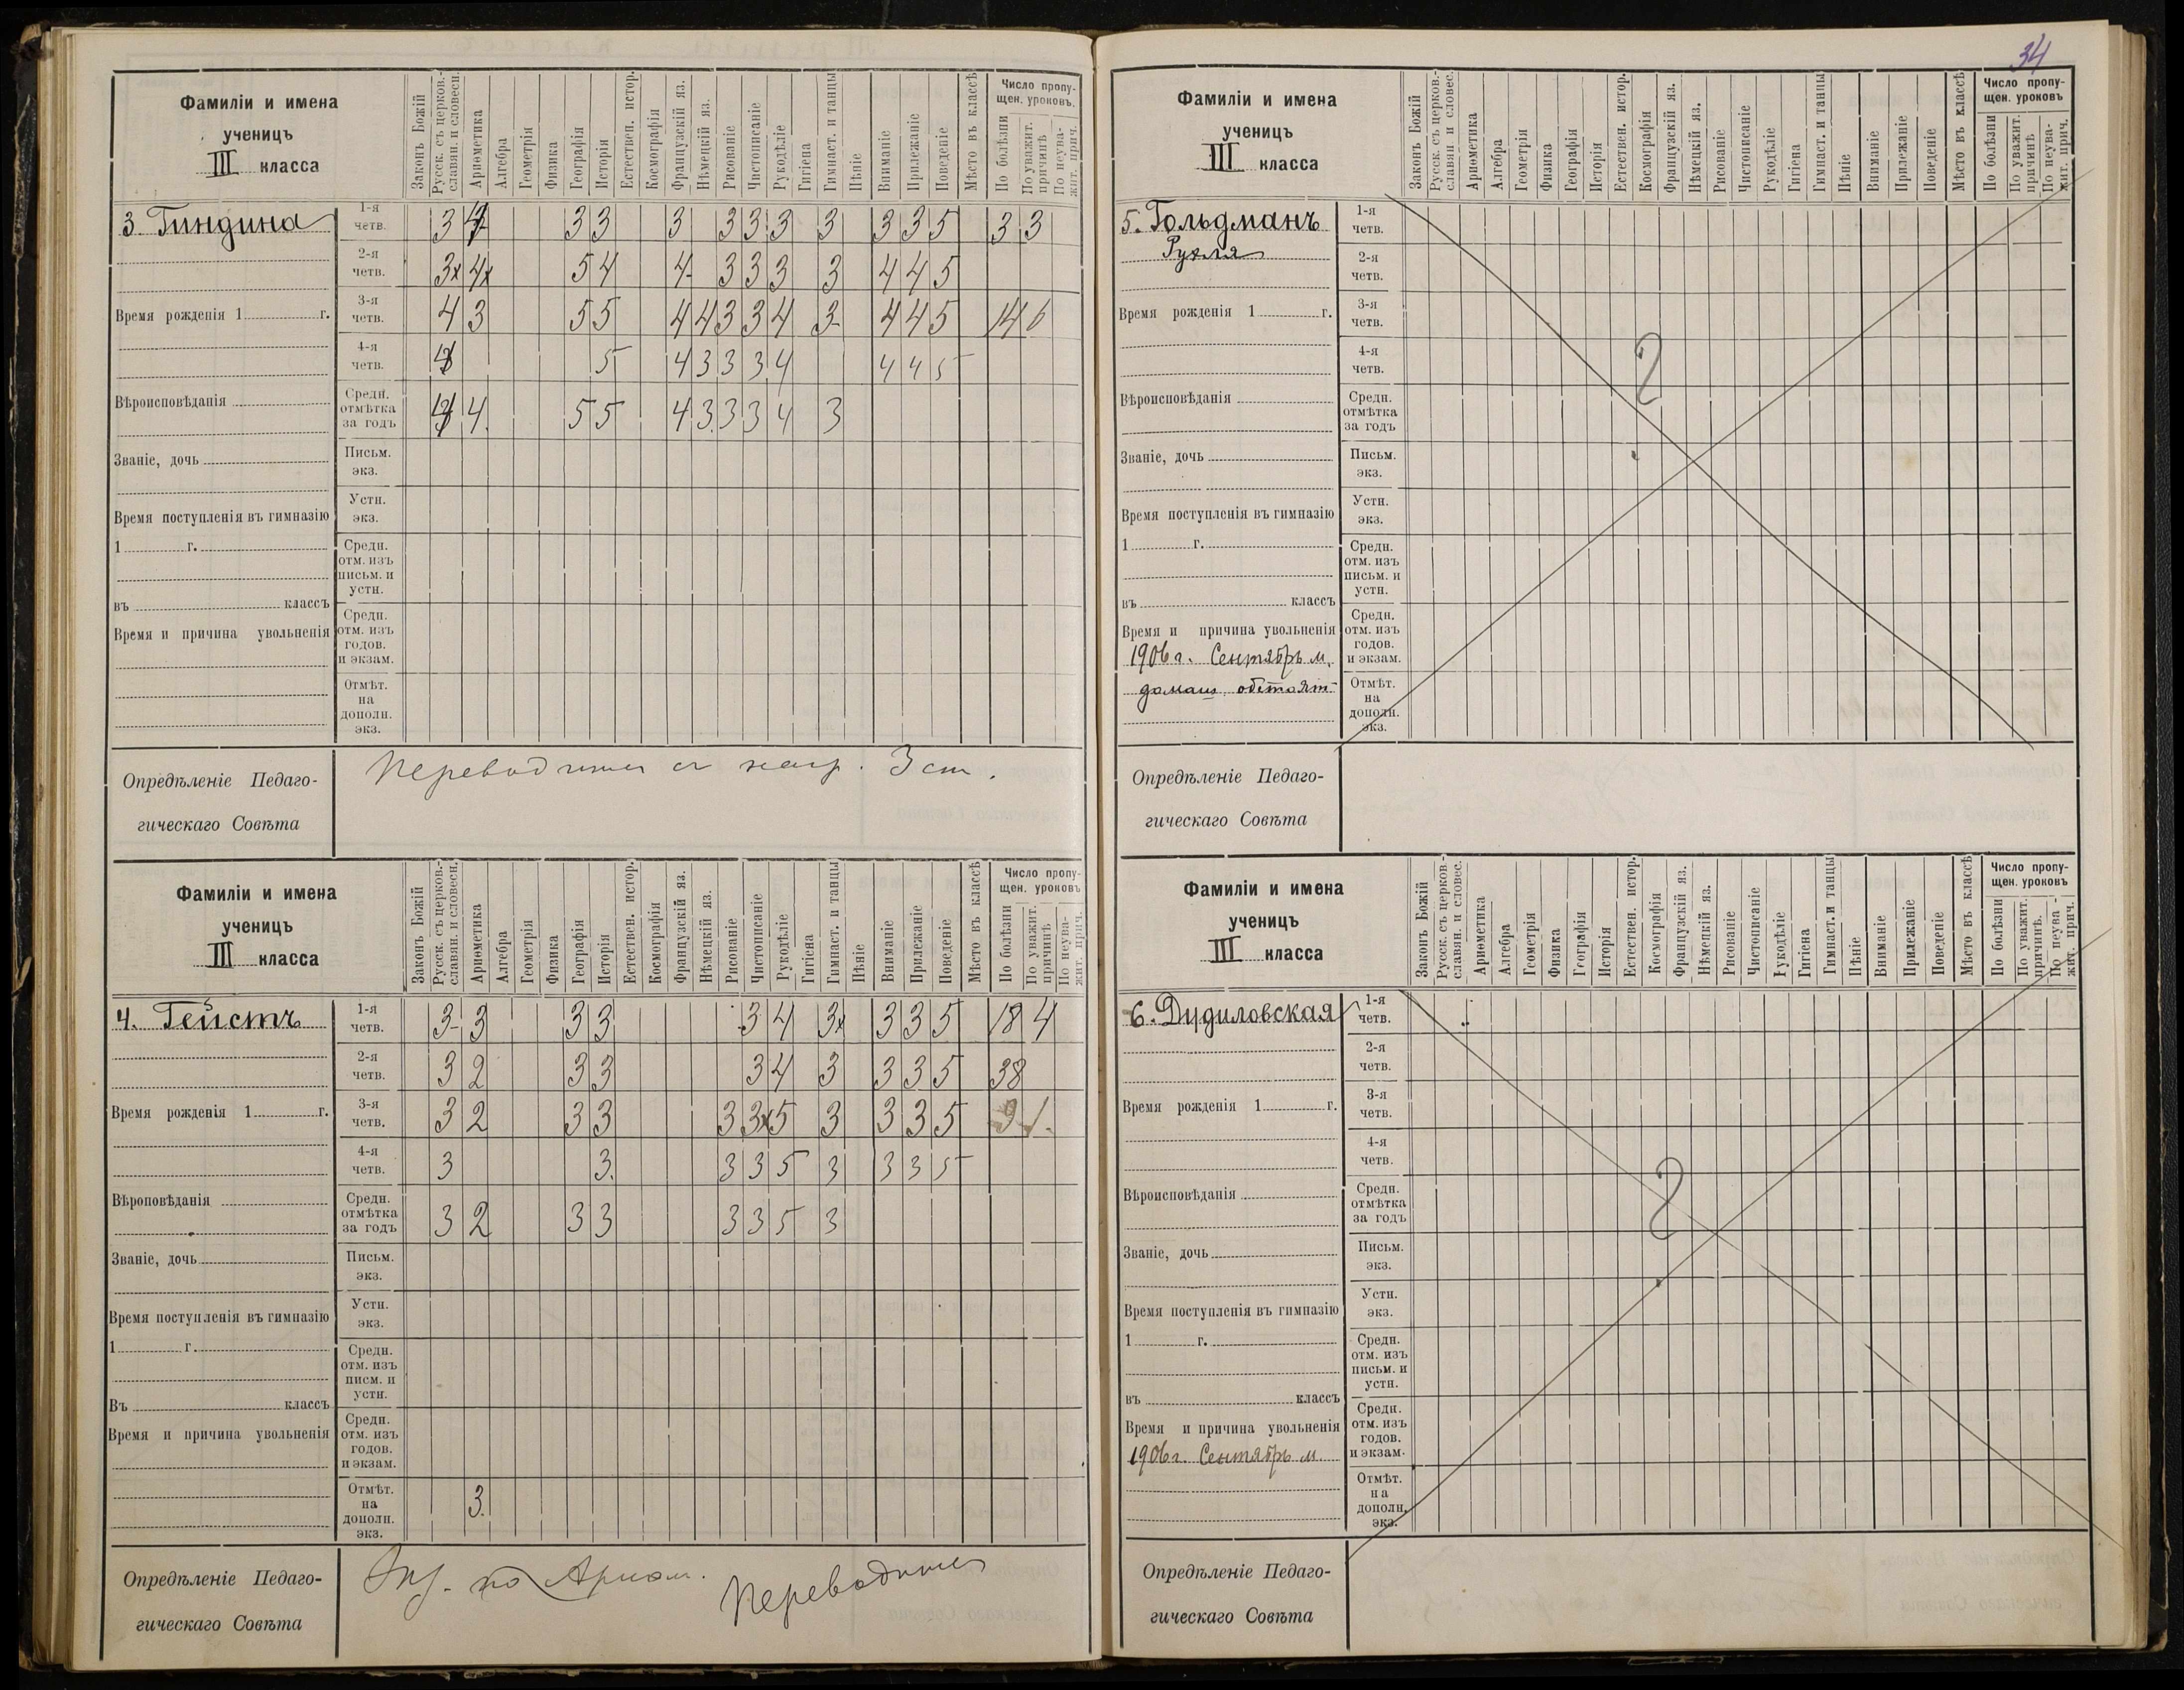 34
Фамиліи и имена
ученицъ
III класса
Законъ Божій
Русск. съ церков.-
славян. и словесн.
Ариѳметика
Алгебра
Геометрія
Физика
Географія
Исторія
Естествен. истор.
Космографія
Французскій яз.
Нѣмецкій яз.
Рисованіе
Чистописаніе
Рукодѣліе
Гигіена
Гимнаст. и танцы
Пѣніе
Вниманіе
Прилежаніе
Поведеніе
Мѣсто въ классѣ
Число пропу-
щен. уроковъ.
По болѣзни
По уважит.
причинѣ
По неува-
жит. прич.
3 Гиндина
1-я четв. 3 4 3 3 3 3 3 3 3 3 3 5 3 3
2-я четв. 3х 4х 5 4 4 3 3 3 3 4 4 5
Время рожденія 1 г.
3-я четв. 4 3 5 5 4 4 3 3 4 3 4 4 5 14 6
4-я четв. 4 5 4 3 3 3 4 4 4 5
Вѣроисповѣданія
Средн. отмѣтка за годъ 4 4 5 5 4 3 3 3 4 3
Званіе, дочь
Письм. экз.
Устн. экз.
Время поступленія въ гимназію
1 г.
Средн. отм. изъ письм. и устн.
въ классъ
Время и причина увольненія
Средн. отм. изъ годов. и экзам.
Отмѣт. на дополн. экз.
Опредѣленіе Педаго-
гическаго Совѣта
Переводится съ нагр. 3 ст.
Фамиліи и имена
ученицъ
III класса
Законъ Божій
Русск. съ церков.-
славян. и словесн.
Ариѳметика
Алгебра
Геометрія
Физика
Географія
Исторія
Естествен. истор.
Космографія
Французскій яз.
Нѣмецкій яз.
Рисованіе
Чистописаніе
Рукодѣліе
Гигіена
Гимнаст. и танцы
Пѣніе
Вниманіе
Прилежаніе
Поведеніе
Мѣсто въ классѣ
Число пропу-
щен. уроковъ
По болѣзни
По уважит.
причинѣ
По неува-
жит. прич.
4. Гейстъ
1-я четв. 3 3 3 3 3 4 3х 3 3 5 18 4
2-я четв. 3 2 3 3 3 4 3 3 3 5 38
Время рожденія 1 г.
3-я четв. 3 2 3 3 3 3х 5 3 3 3 5 9 1.
4-я четв. 3 3. 3 3 5 3 3 3 5
Вѣроповѣданія
Средн. отмѣтка за годъ 3 2 3 3 3 3 5 3
Званіе, дочь
Письм. экз.
Устн. экз.
Время поступленія въ гимназію
1 г.
Средн. отм. изъ писм. и устн.
Въ классъ
Время и причина увольненія
Средн. отм. изъ годов. и экзам.
Отмѣт. на дополн. экз. 3.
Опредѣленіе Педаго-
гическаго Совѣта
по Ариѳм. Переводится
Фамиліи и имена
ученицъ
III класса
Законъ Божій
Русск. съ церков.-
славян и словес.
Ариѳметика
Алгебра
Геометрія
Физика
Географія
Исторія
Естествен. истор.
Космографія
Французскій яз.
Нѣмецкій яз.
Рисованіе
Чистописаніе
Рукодѣліе
Гигіена
Гимнаст. и танцы
Пѣніе
Вниманіе
Прилежаніе
Поведеніе
Мѣсто въ классѣ
Число пропу-
щен. уроковъ
По болѣзни
По уважит.
причинѣ
По неува-
жит. прич.
5. Гольдманъ
Рухля
1-я четв.
2-я четв.
Время рожденія 1 г.
3-я четв.
4-я четв.
Вѣроисповѣданія
Средн. отмѣтка за годъ
Званіе, дочь
Письм. экз.
Устн. экз.
Время поступленія въ гимназію
1 г.
Средн. отм. изъ письм. и устн.
въ классъ
Время и причина увольненія
1906 г. Сентябрь м.
домаш. обстоят
Средн. отм. изъ годов. и экзам.
Отмѣт. на дополн. экз.
Опредѣленіе Педаго-
гическаго Совѣта
Фамиліи и имена
ученицъ
III класса
Законъ Божій
Русск. съ церков.-
славян. и словес.
Ариѳметика
Алгебра
Геометрія
Физика
Географія
Исторія
Естествен. истор.
Космографія
Французскій яз.
Нѣмецкій яз.
Рисованіе
Чистописаніе
Рукодѣліе
Гигіена
Гимнаст. и танцы
Пѣніе
Вниманіе
Прилежаніе
Поведеніе
Мѣсто въ классѣ
Число пропу-
щен. уроковъ
По болѣзни
По уважит.
причинѣ.
По неува-
жит. прич.
6. Дудиловская
1-я четв.
2-я четв.
Время рожденія 1 г.
3-я четв.
4-я четв.
Вѣроисповѣданія
Средн. отмѣтка за годъ
Званіе, дочь
Письм. экз.
Устн. экз.
Время поступленія въ гимназію
1 г.
Средн. отм. изъ письм. и устн.
въ классъ
Время и причина увольненія
1906 г. Сентябрь м
Средн. отм. изъ годов. и экзам.
Отмѣт. на дополн. экз.
Опредѣленіе Педаго-
гическаго Совѣта